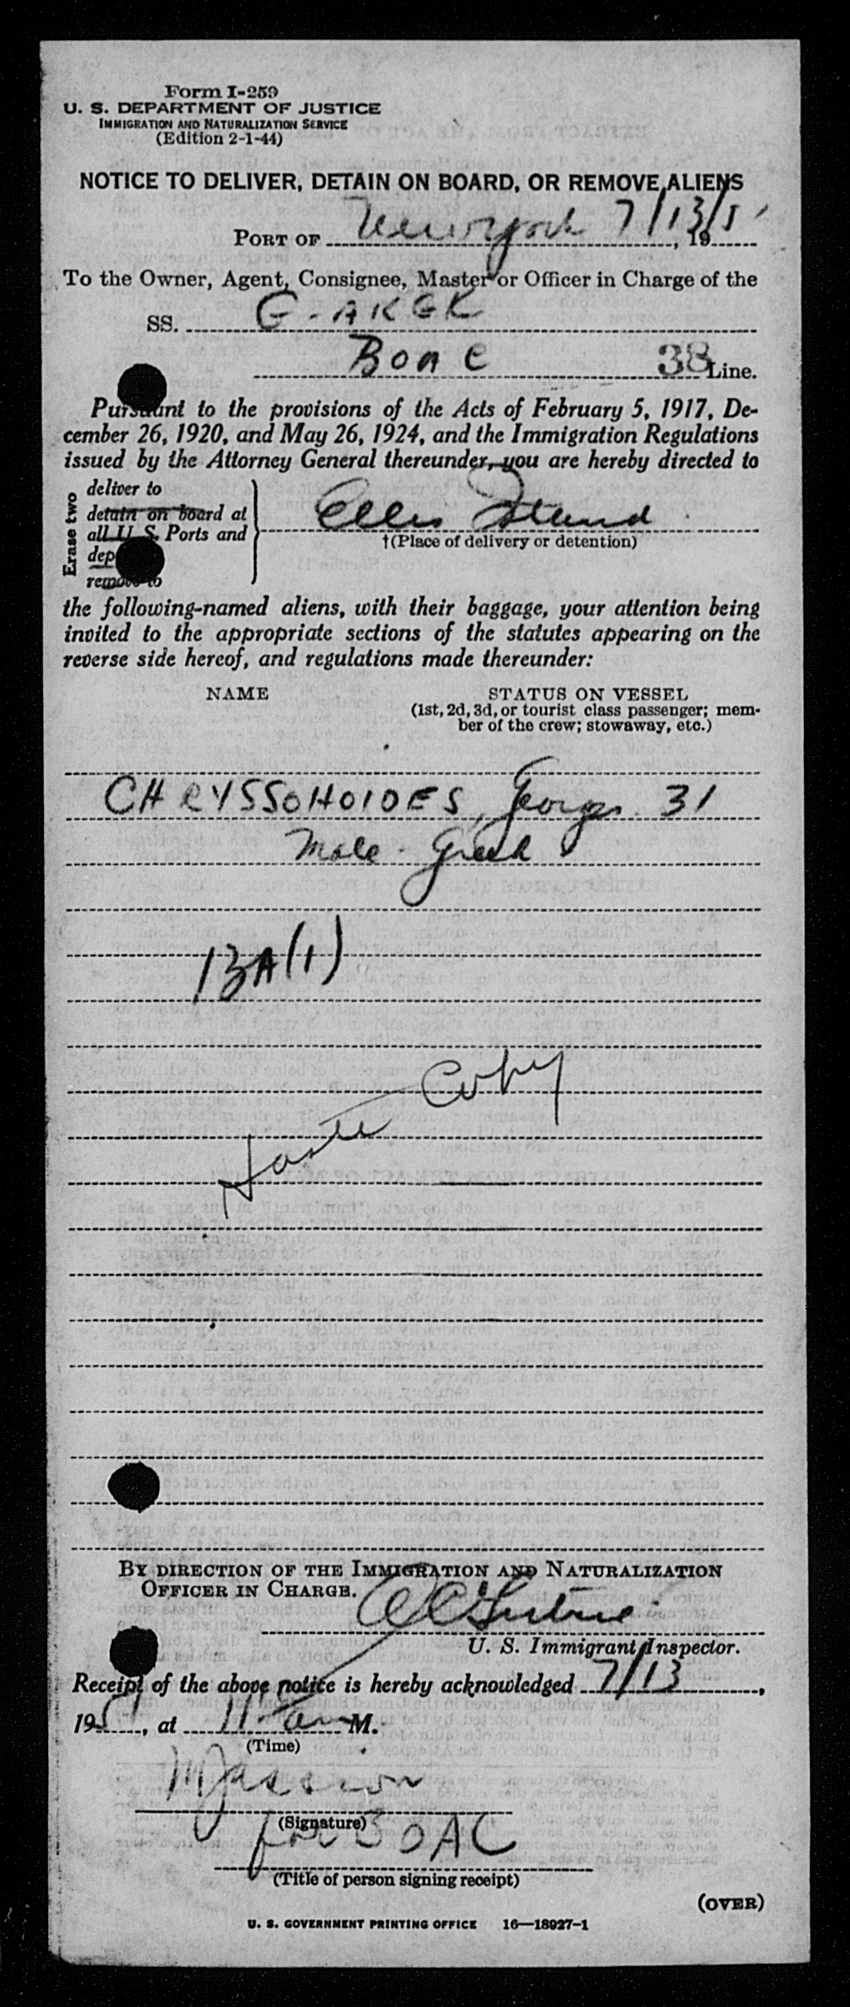 Form I-259
U. S. DEPARTMENT OF JUSTICE
IMMIGRATION AND NATURALIZATION SERVICE
(Edition 2-1-44)
NOTICE TO DELIVER, DETAIN ON BOARD, OR REMOVE ALIENS
PORT OF New York 7/13/5, 19
To the Owner, Agent, Consignee, Master or Officer in Charge of the
SS. G-AKGK
38 Line.
Pursuant to the provisions of the Acts of February 5, 1917, De-
cember 26, 1920, and May 26, 1924, and the Immigration Regulations
issued by the Attorney General thereunder, you are hereby directed to
Erase two
deliver to
detain on board at
all U. S. Ports and
dep
remove to
Ellis Island
†(Place of delivery or detention)
the following-named aliens, with their baggage, your attention being
invited to the appropriate sections of the statutes appearing on the
reverse side hereof, and regulations made thereunder:
NAME STATUS ON VESSEL
(1st, 2d, 3d, or tourist class passenger; mem-
ber of the crew; stowaway, etc.)
CHRYSSOHOIDES, George 31
Male - Greek
13A(1)
Copy
BY DIRECTION OF THE IMMIGRATION AND NATURALIZATION
OFFICER IN CHARGE.
U. S. Immigrant Inspector.
Receipt of the above notice is hereby acknowledged 7/13,
1951, at 11 am M.
(Time)
(Signature)
for BOAC
(Title of person signing receipt)
(OVER)
U. S. GOVERNMENT PRINTING OFFICE 16—18927-1